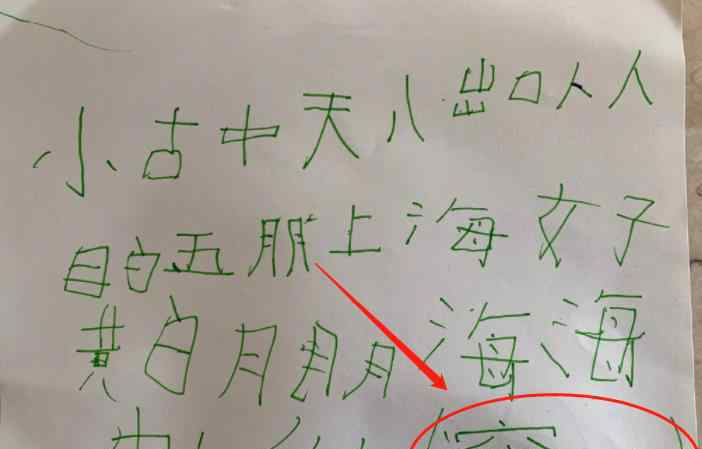 小古中天八出口人人
目白五朋上海女子
黄白月朋月海海